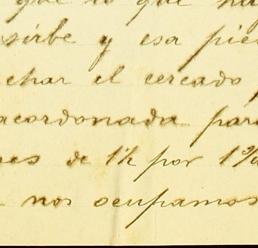 que lo que ha
sirbe y esa pie
char el cercado
acordonada par
es de 1½ por 1
nos ocupamos